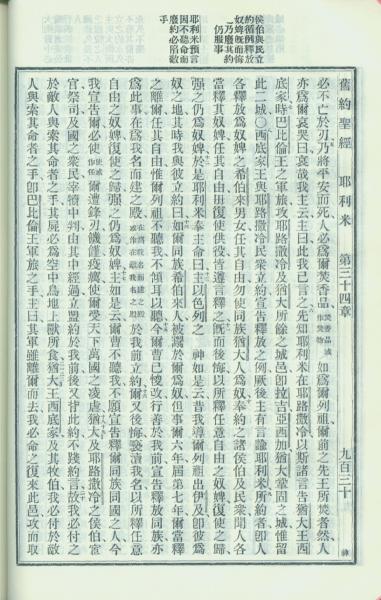 侯伯與民立
約循例釋放
奴婢既而悔
之乃廢其約
仍服事
耶利米預言
因不聽命而
廢約必陷敵
手
舊約聖經 耶利米 第三十四章 九百三十
必不亡於刃乃將平安而死人必爲爾焚香品焚香品或作焚物如爲爾列祖爾前之先王所焚者然人
亦爲爾哀哭曰哀哉我主云主曰此我已言之先知耶利米在耶路撒冷以斯諸言告猶大王西
底家時巴比倫王之軍旅攻耶路撒冷及猶大所餘之城邑卽拉吉亞西加猶大鞏固之城惟留
此二城〇西底家王與耶路撒冷民衆立約宣告釋放之例厥後主有言諭耶利米所約者卽人
各釋放爲奴婢之希伯來男女任其自由勿使同族猶大人爲奴奉約之諸侯伯及民衆聞人各
當釋其奴婢任其自由毋復使供役皆遵言釋之既而後悔以所釋任意自由之奴婢復使之歸
强之仍爲奴婢於是耶利米奉主命曰主以色列之 神如是云昔我導爾列祖出伊及卽彼爲
奴之地其時我與彼立約曰如爾同族希伯來人被鬻於爾爲奴但事爾六年屆第七年爾當釋
之離爾任其自由惟爾列祖不聽我不傾耳以聽今爾曹已悛改行善於我前宣告釋放同族亦
爲此事在爲我名而建之殿於我前立約爾又後悔褻瀆我名以所釋任意
自由之奴婢復使之歸强之仍爲奴婢主如是云爾曹不聽我不願宣告釋爾同族同國之人今
我宣告爾必使爾遭鋒刃饑饉疫癘使爾受天下萬國之凌虐猶大及耶路撒冷之侯伯宦
官祭司及國之衆民宰犢中判由其中經過立盟約於我前後又背此約不踐約言故我必付之
於敵人與索其命者之手其屍必爲空中鳥地上獸所食猶大王西底家及其牧伯我必付於敵
人與索其命者之手卽巴比倫王軍旅之手主曰其軍雖離爾而去我必命之復來此邑攻而取